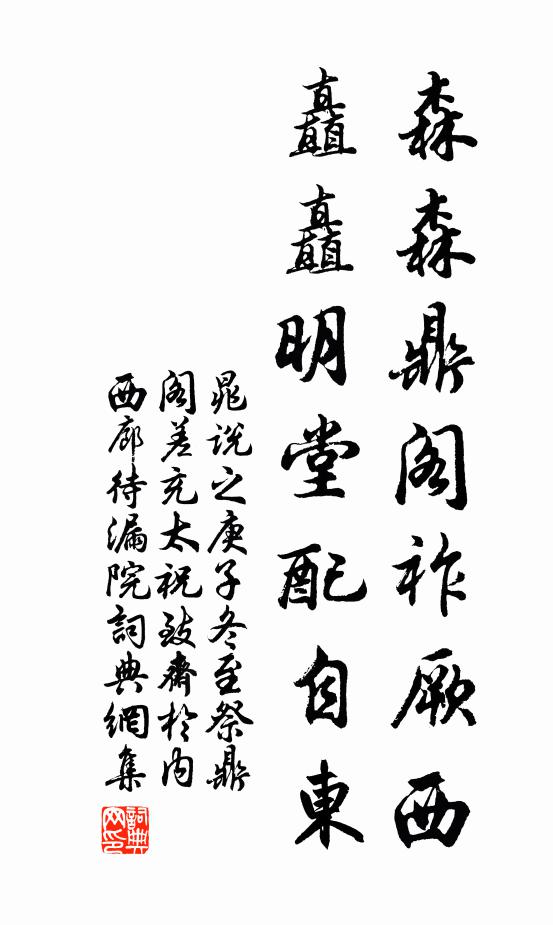 森森鼎阁祚厥西
矗矗明堂配自東
晁説之庚子冬至祭鼎
阁差充太祝致齋於内
西廊待漏院詞典網集
詞典网印